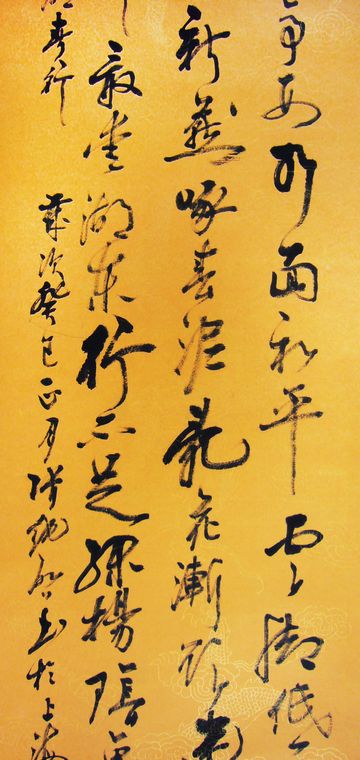 亭西水面初平云脚低
新燕啄春泥亂花漸欲迷
最愛湖東行不足綠楊陰
湖春行
歲次癸巳正月書於上海